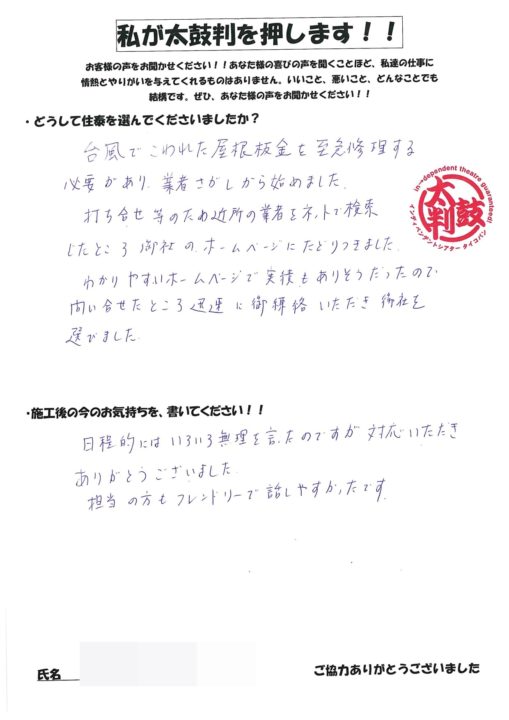 私が太鼓判を押します！！
お客様の声をお聞かせください！！あなた様の喜びの声を聞くことほど、私達の仕事に
情熱とやりがいを与えてくれるものはありません。いいこと、悪いこと、どんなことでも
結構です。ぜひ、あなた様の声をお聞かせください！！
・どうして住泰を選んでくださいましたか？
台風でこわれた屋根板金を至急修理する
必要があり、業者さがしから始めました。
打ち合せ等のため近所の業者をネットで検索
したところ御社のホームページにたどりつきました。
わかりやすいホームページで実績もありそうだったので
問い合せたところ迅速に御連絡いただき御社を
選びました。
in→dependent theatre guaranteed!
太鼓判
インディペンデントシアター タイコバン
・施工後の今のお気持ちを、書いてください！！
日程的にはいろいろ無理を言ったのですが対応いただき
ありがとうございました。
担当の方もフレンドリーで話しやすかったです。
氏名
ご協力ありがとうございました